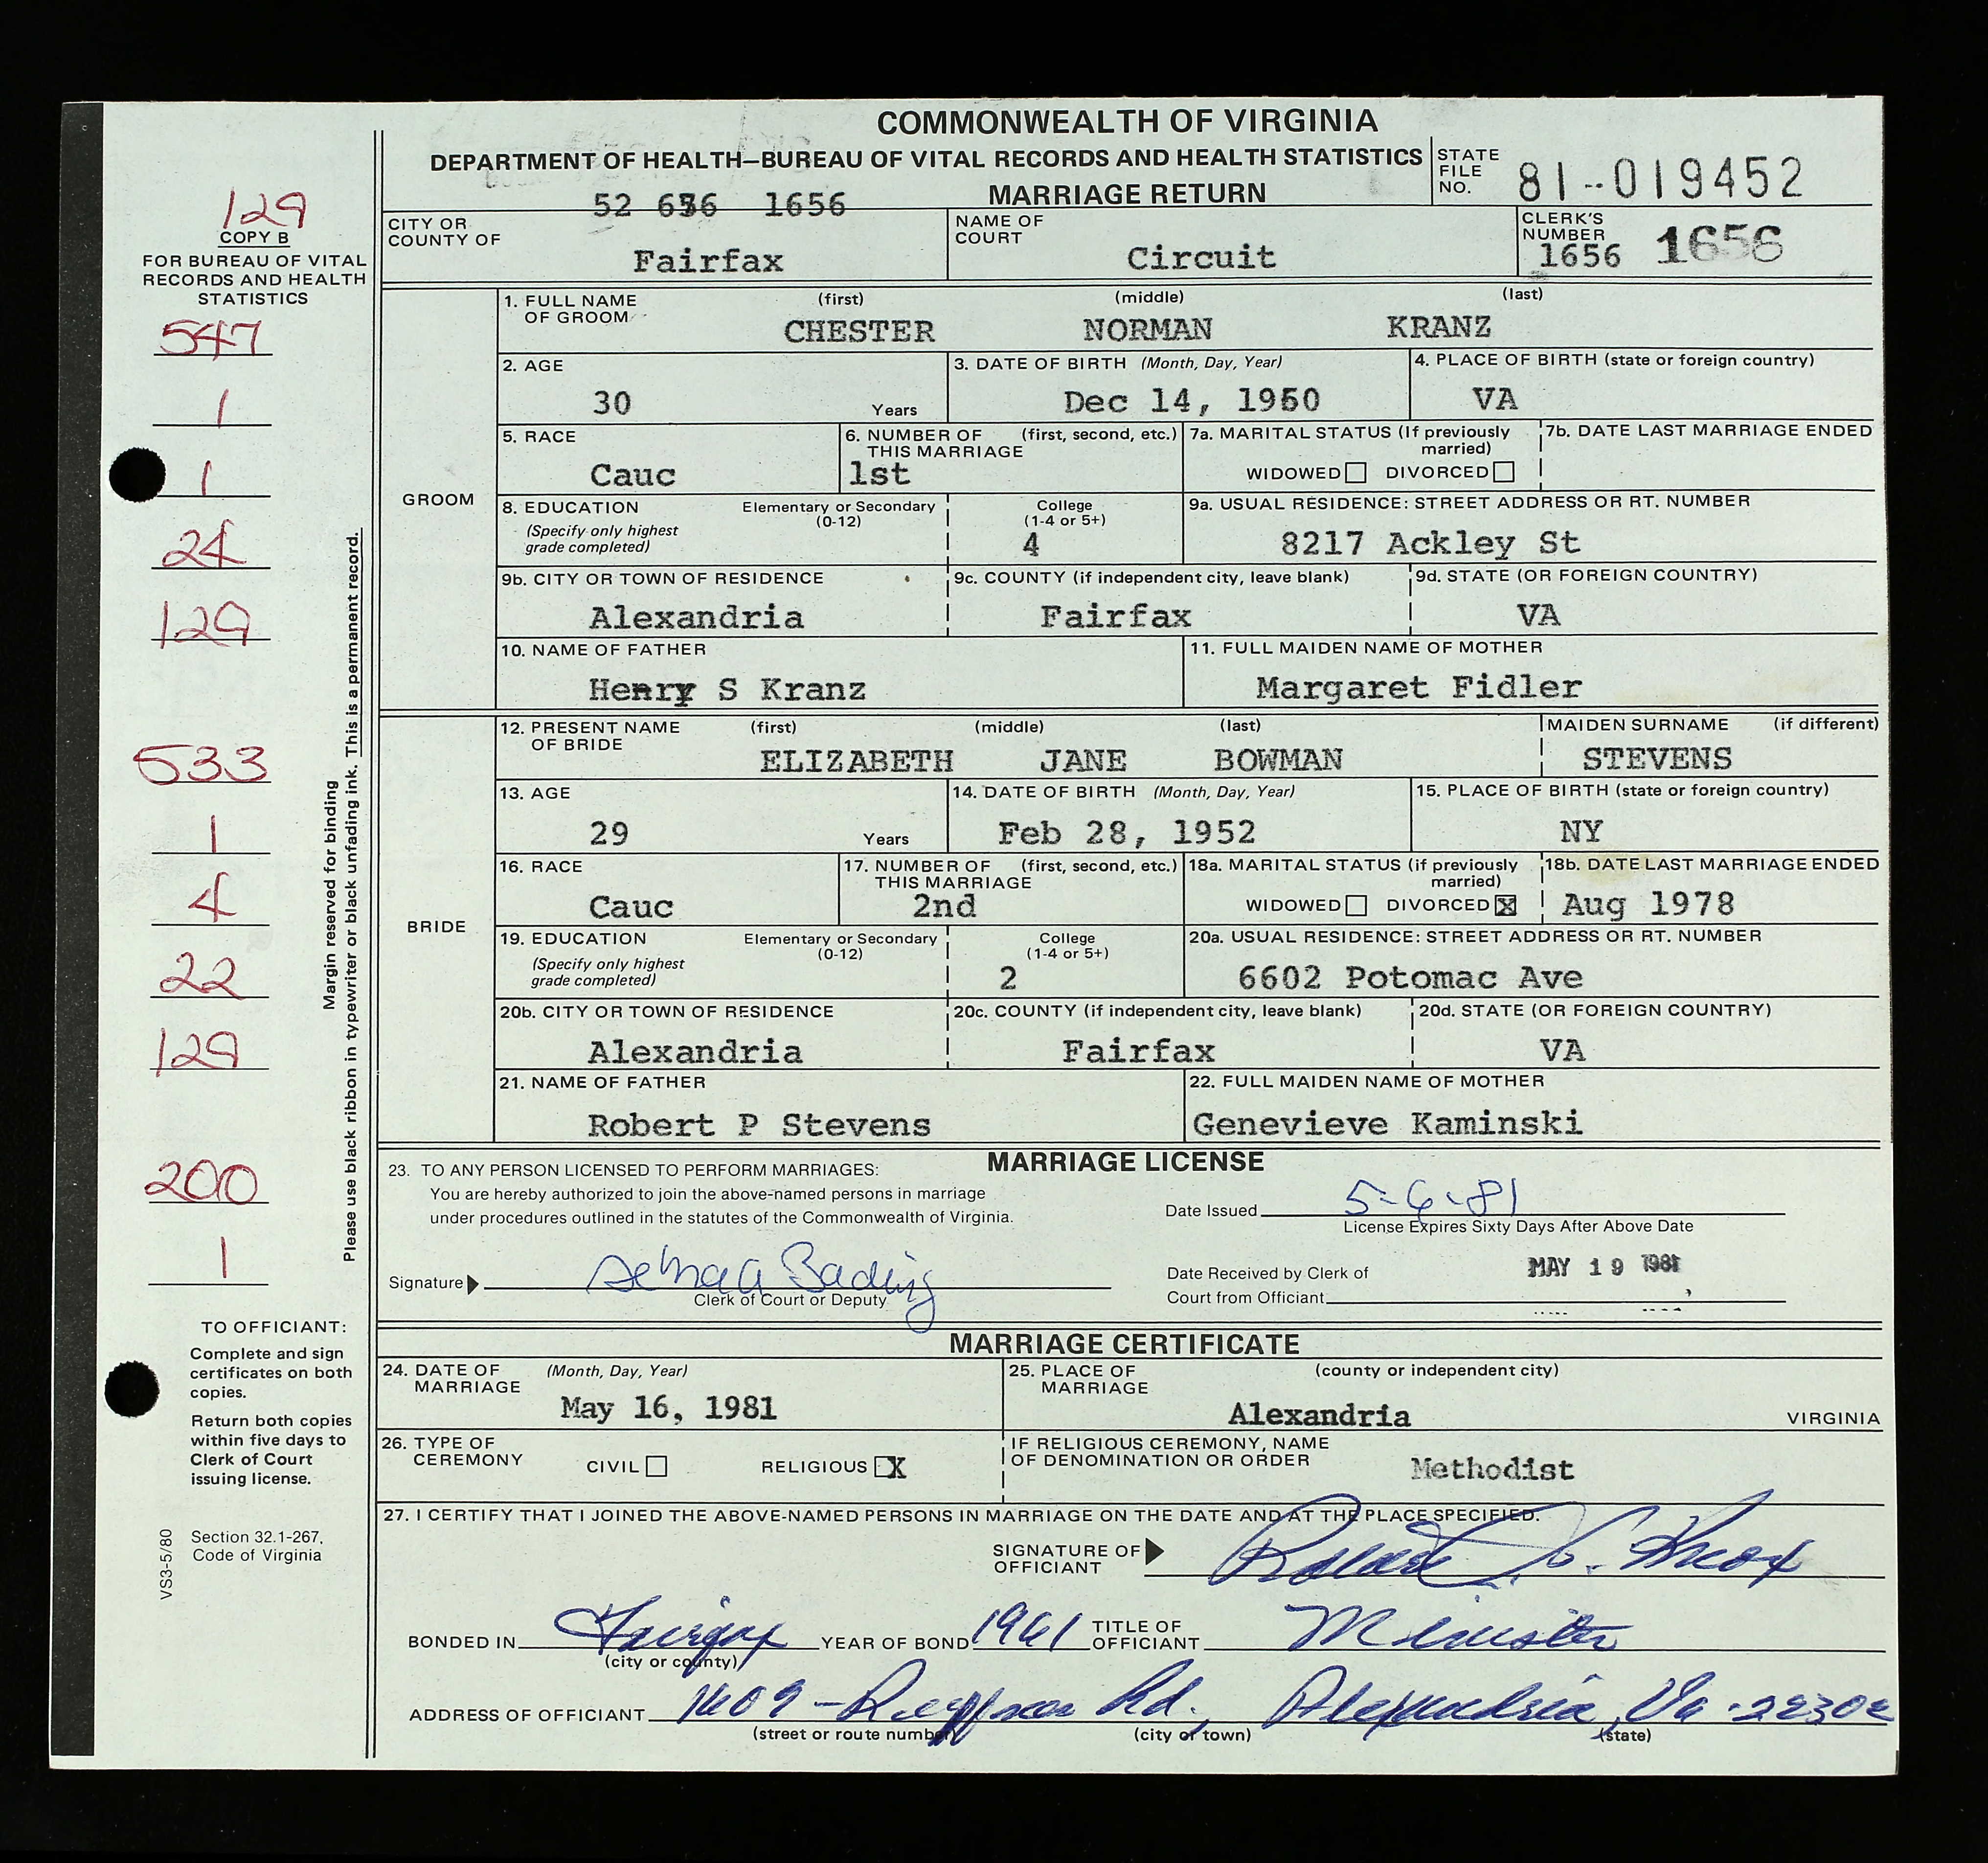 COMMONWEALTH OF VIRGINIA
DEPARTMENT OF HEALTH—BUREAU OF VITAL RECORDS AND HEALTH STATISTICS
MARRIAGE RETURN
STATE FILE NO. 81-019452
52 636 1656
129
COPY B
FOR BUREAU OF VITAL
RECORDS AND HEALTH
STATISTICS
547
1
1
24
129
533
1
4
22
129
200
1
Margin reserved for binding
Please use black ribbon in typewriter or black unfading ink. This is a permanent record.
TO OFFICIANT:
Complete and sign
certificates on both
copies.
Return both copies
within five days to
Clerk of Court
issuing license.
Section 32.1-267,
Code of Virginia
VS3-5/80
CITY OR COUNTY OF Fairfax
NAME OF COURT Circuit
CLERK'S NUMBER 1656 1656
GROOM
1. FULL NAME OF GROOM (first) (middle) (last)
CHESTER NORMAN KRANZ
2. AGE 30 Years
3. DATE OF BIRTH (Month, Day, Year) Dec 14, 1950
4. PLACE OF BIRTH (state or foreign country) VA
5. RACE Cauc
6. NUMBER OF THIS MARRIAGE (first, second, etc.) 1st
7a. MARITAL STATUS (If previously married) WIDOWED DIVORCED
7b. DATE LAST MARRIAGE ENDED
8. EDUCATION (Specify only highest grade completed) Elementary or Secondary (0-12) College (1-4 or 5+) 4
9a. USUAL RESIDENCE: STREET ADDRESS OR RT. NUMBER 8217 Ackley St
9b. CITY OR TOWN OF RESIDENCE Alexandria
9c. COUNTY (if independent city, leave blank) Fairfax
9d. STATE (OR FOREIGN COUNTRY) VA
10. NAME OF FATHER Henry S Kranz
11. FULL MAIDEN NAME OF MOTHER Margaret Fidler
BRIDE
12. PRESENT NAME OF BRIDE (first) (middle) (last) MAIDEN SURNAME (if different)
ELIZABETH JANE BOWMAN STEVENS
13. AGE 29 Years
14. DATE OF BIRTH (Month, Day, Year) Feb 28, 1952
15. PLACE OF BIRTH (state or foreign country) NY
16. RACE Cauc
17. NUMBER OF THIS MARRIAGE (first, second, etc.) 2nd
18a. MARITAL STATUS (if previously married) WIDOWED DIVORCED X
18b. DATE LAST MARRIAGE ENDED Aug 1978
19. EDUCATION (Specify only highest grade completed) Elementary or Secondary (0-12) College (1-4 or 5+) 2
20a. USUAL RESIDENCE: STREET ADDRESS OR RT. NUMBER 6602 Potomac Ave
20b. CITY OR TOWN OF RESIDENCE Alexandria
20c. COUNTY (if independent city, leave blank) Fairfax
20d. STATE (OR FOREIGN COUNTRY) VA
21. NAME OF FATHER Robert P Stevens
22. FULL MAIDEN NAME OF MOTHER Genevieve Kaminski
MARRIAGE LICENSE
23. TO ANY PERSON LICENSED TO PERFORM MARRIAGES:
You are hereby authorized to join the above-named persons in marriage
under procedures outlined in the statutes of the Commonwealth of Virginia.
Date Issued 5-6-81
License Expires Sixty Days After Above Date
Signature
Clerk of Court or Deputy
Date Received by Clerk of
Court from Officiant MAY 19 1981
MARRIAGE CERTIFICATE
24. DATE OF MARRIAGE (Month, Day, Year) May 16, 1981
25. PLACE OF MARRIAGE (county or independent city) Alexandria VIRGINIA
26. TYPE OF CEREMONY CIVIL RELIGIOUS X
IF RELIGIOUS CEREMONY, NAME OF DENOMINATION OR ORDER Methodist
27. I CERTIFY THAT I JOINED THE ABOVE-NAMED PERSONS IN MARRIAGE ON THE DATE AND AT THE PLACE SPECIFIED.
SIGNATURE OF OFFICIANT
BONDED IN Fairfax YEAR OF BOND 1961 TITLE OF OFFICIANT Minister
(city or county)
ADDRESS OF OFFICIANT 1609 - Rd., Alexandria, Va. 22302
(street or route number) (city or town) (state)